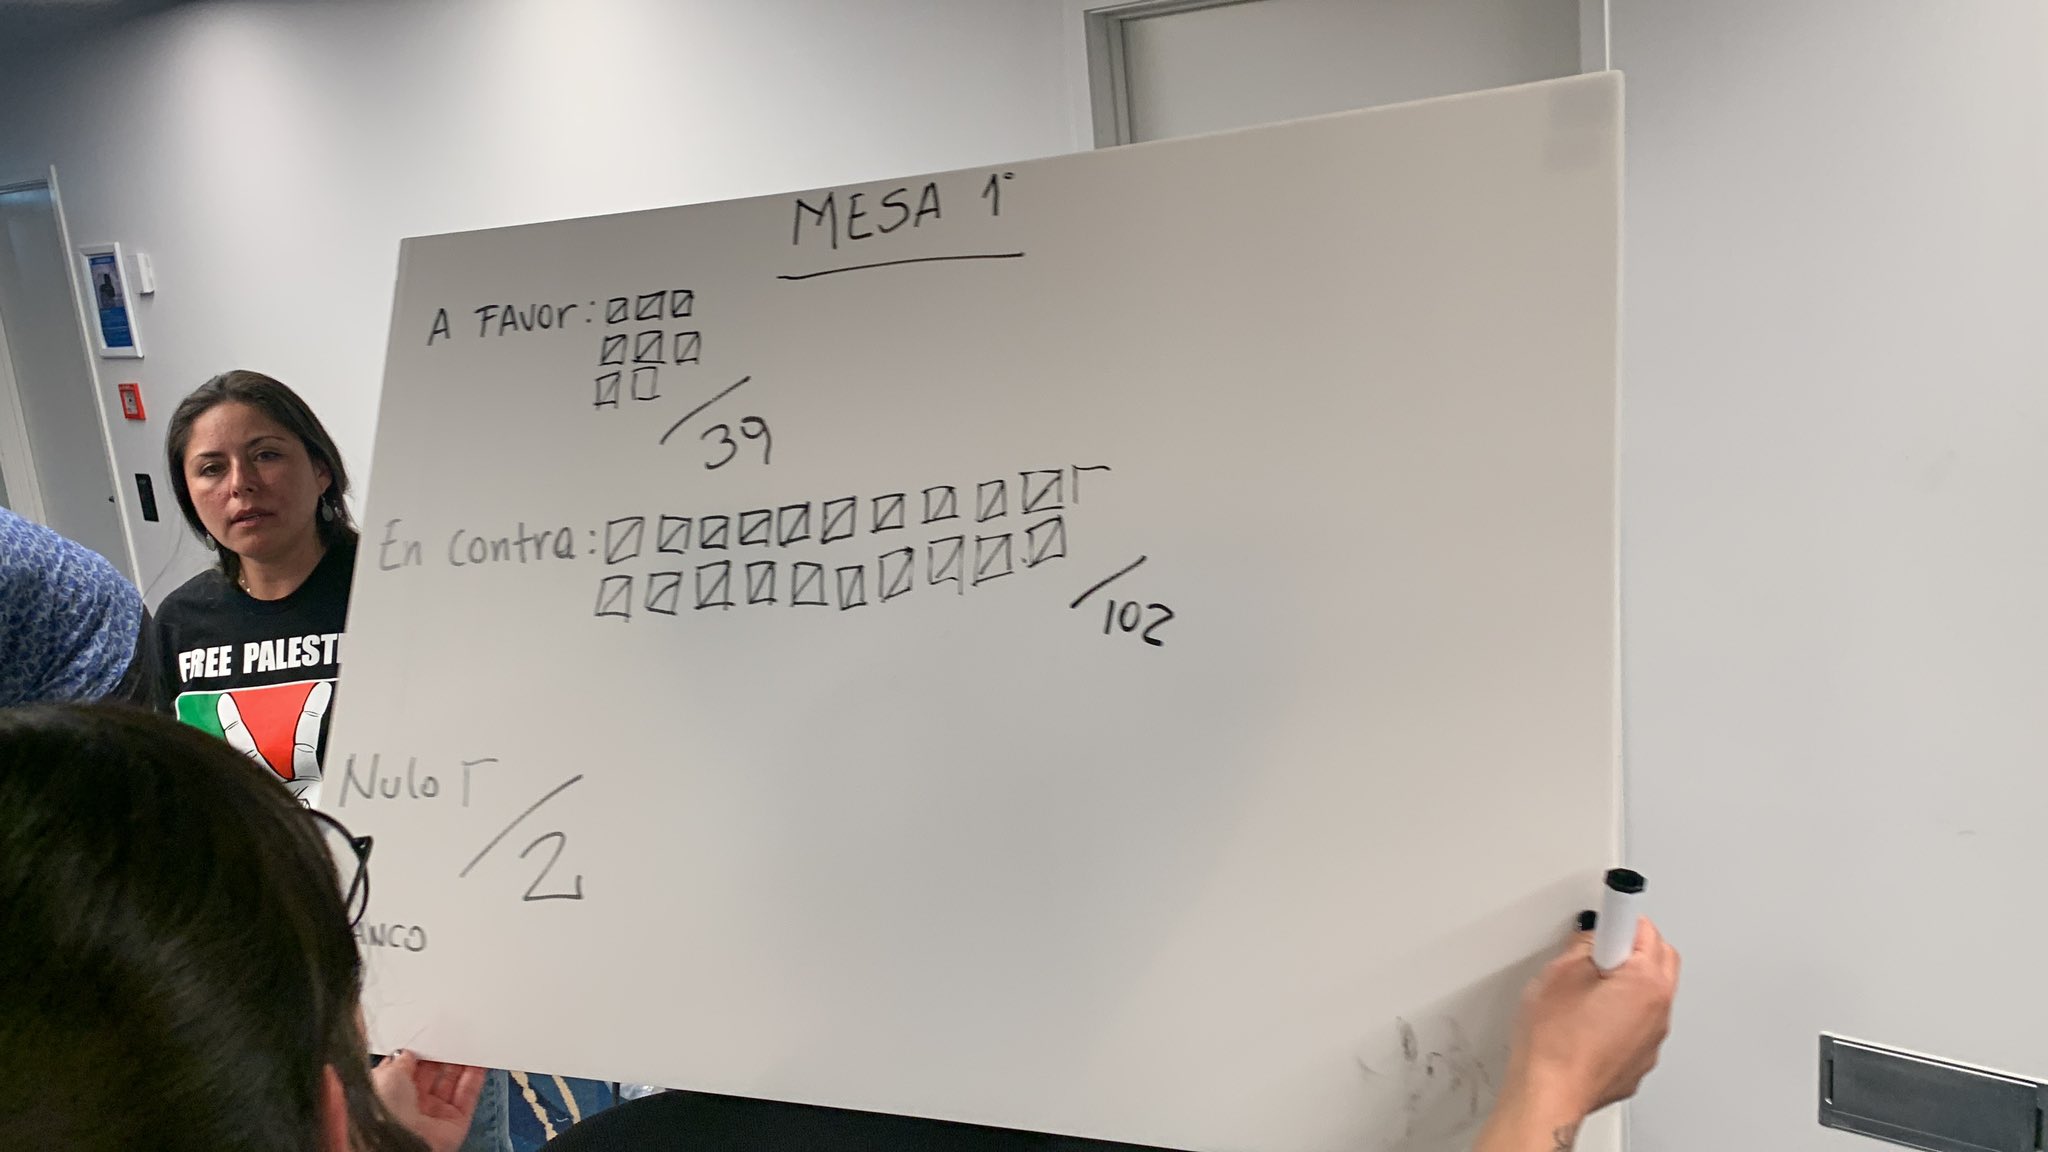 MESA 1°
A FAVOR:
39
En contra:
102
Nulo
2
ANCO
FREE PALESTI